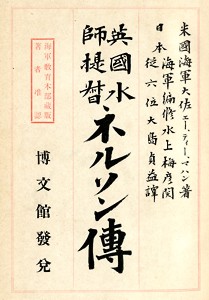 米國海軍大佐エー、ティー、マハン著
海軍編修水上梅彦閲
日本從六位大島貞益譯
英國水
師提督
ネルソン傳
海軍教育本部藏版
博文館發兌